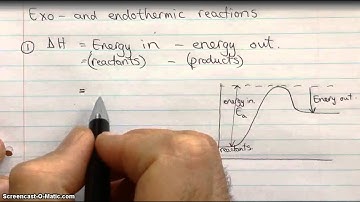 Exo- and endothermic reactions
① ΔH = Energy in - energy out.
=(reactants) - (products)
=
energy in
Ea
Energy out
reactants
Screencast-O-Matic.com